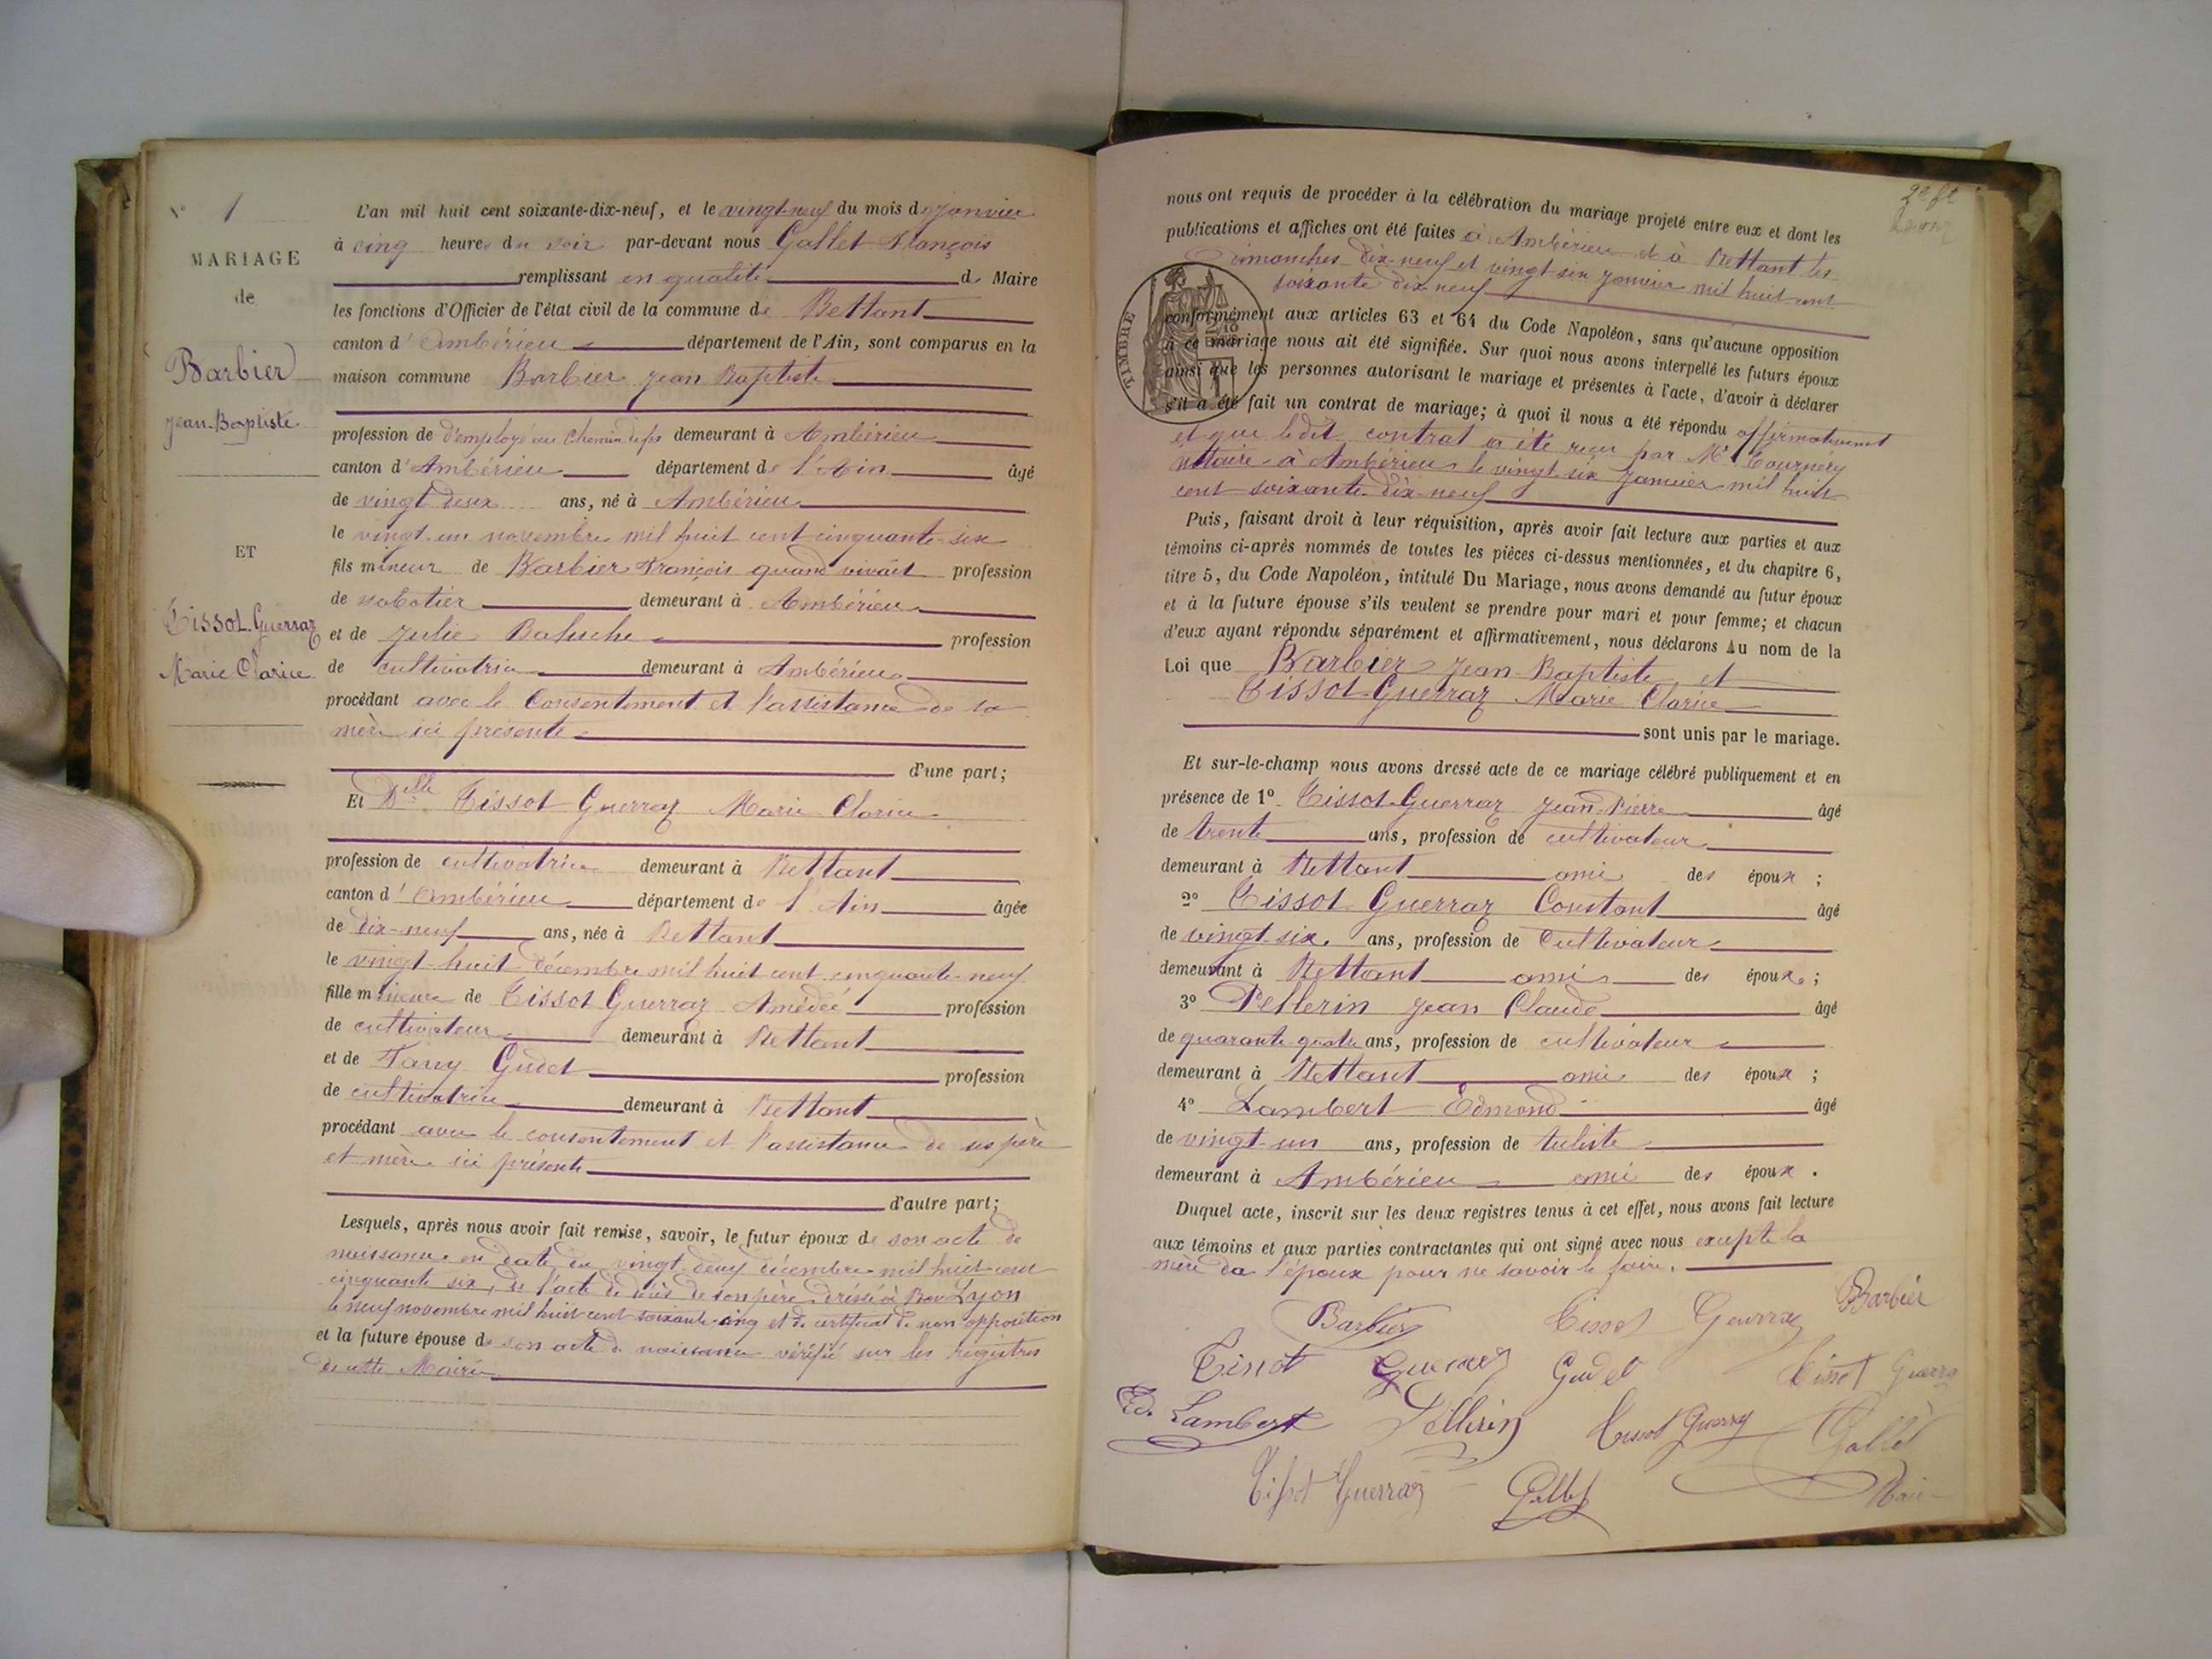 N° 1
MARIAGE
de
Barbier
Jean-Baptiste
ET
Tissot-Guerraz
Marie Clarice
L'an mil huit cent soixante-dix-neuf, et le vingt-neuf du mois de Janvier
à cinq heures du soir par-devant nous Gallet François
remplissant en qualité de Maire
les fonctions d'Officier de l'état civil de la commune de Bettant
canton d'Ambérieu département de l'Ain, sont comparus en la
maison commune Barbier Jean Baptiste
profession de d'employé au Chemin de fer demeurant à Ambérieu
canton d'Ambérieu département de l'Ain âgé
de vingt deux ans, né à Ambérieu
le vingt-un novembre mil huit cent cinquante-six
fils mineur de Barbier François quand vivait profession
de sabotier demeurant à Ambérieu
et de Julie Baluche profession
de cultivatrice demeurant à Ambérieu
procédant avec le Consentement et l'assistance de sa
mère ici présente
d'une part;
Et Delle Tissot-Guerraz Marie Clarice
profession de cultivatrice demeurant à Bettant
canton d'Ambérieu département de l'Ain âgée
de dix-neuf ans, née à Bettant
le vingt-huit décembre mil huit cent cinquante-neuf
fille mineure de Tissot Guerraz Amédée profession
de cultivateur demeurant à Bettant
et de Fany Gudet profession
de cultivatrice demeurant à Bettant
procédant avec le consentement et l'assistance de ses père
et mère ici présents
d'autre part;
Lesquels, après nous avoir fait remise, savoir, le futur époux de son acte de
naissance en date du vingt-deux décembre mil huit cent
cinquante six, de l'acte de décès de son père dressé à Lyon
le neuf novembre mil huit cent soixante-cinq et de certificat de non opposition
et la future épouse de son acte de naissance vérifié sur les registres
de cette Mairie
2e ft
nous ont requis de procéder à la célébration du mariage projeté entre eux et dont les
publications et affiches ont été faites à Ambérieu et à Bettant les
Dimanches dix-neuf et vingt-six janvier mil huit cent
soixante dix neuf
TIMBRE
conformément aux articles 63 et 64 du Code Napoléon, sans qu'aucune opposition
à ce mariage nous ait été signifiée. Sur quoi nous avons interpellé les futurs époux
ainsi que les personnes autorisant le mariage et présentes à l'acte, d'avoir à déclarer
s'il a été fait un contrat de mariage; à quoi il nous a été répondu affirmativement
et que ledit contrat a été reçu par Me Tournéry
notaire à Ambérieu le vingt-six Janvier mil huit
cent soixante-dix-neuf
Puis, faisant droit à leur réquisition, après avoir fait lecture aux parties et aux
témoins ci-après nommés de toutes les pièces ci-dessus mentionnées, et du chapitre 6,
titre 5, du Code Napoléon, intitulé Du Mariage, nous avons demandé au futur époux
et à la future épouse s'ils veulent se prendre pour mari et pour femme; et chacun
d'eux ayant répondu séparément et affirmativement, nous déclarons Au nom de la
Loi que Barbier Jean-Baptiste et
Tissot-Guerraz Marie Clarice
sont unis par le mariage.
Et sur-le-champ nous avons dressé acte de ce mariage célébré publiquement et en
présence de 1° Tissot-Guerraz Jean-Pierre âgé
de trente ans, profession de cultivateur
demeurant à Bettant ami des époux ;
2° Tissot Guerraz Constant âgé
de vingt-six ans, profession de Cultivateur
demeurant à Bettant ami des époux ;
3° Pellerin Jean Claude âgé
de quarante quatre ans, profession de cultivateur
demeurant à Bettant ami des époux ;
4° Lambert Edmond âgé
de vingt-un ans, profession de tuliste
demeurant à Ambérieu ami des époux .
Duquel acte, inscrit sur les deux registres tenus à cet effet, nous avons fait lecture
aux témoins et aux parties contractantes qui ont signé avec nous excepté la
mère de l'époux pour ne savoir le faire.
Barbier Tissot Guerraz Barbier
Tissot Guerraz Gudet Tissot Guerraz
Ed. Lambert Pellerin Tissot Guerraz Gallet
Tissot Guerraz Gallet Maire